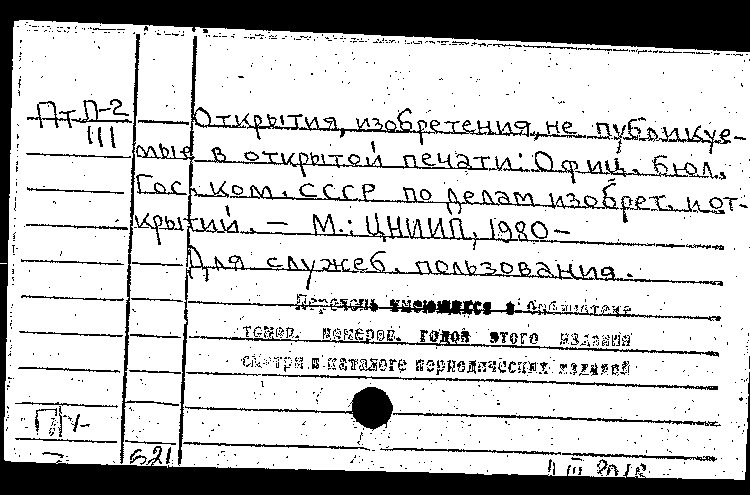 Пт П-2
III
Открытия, изобретения, не публикуе-
мые в открытой печати: Офиц. бюл.
Гос. ком. СССР по делам изобрет. и от-
крытий. — М.: ЦНИИП, 1980–
Для служеб. пользования.
Перечень имеющихся в библиотеке
томов, номеров, годов этого издания
смотри в каталоге периодических изданий
621